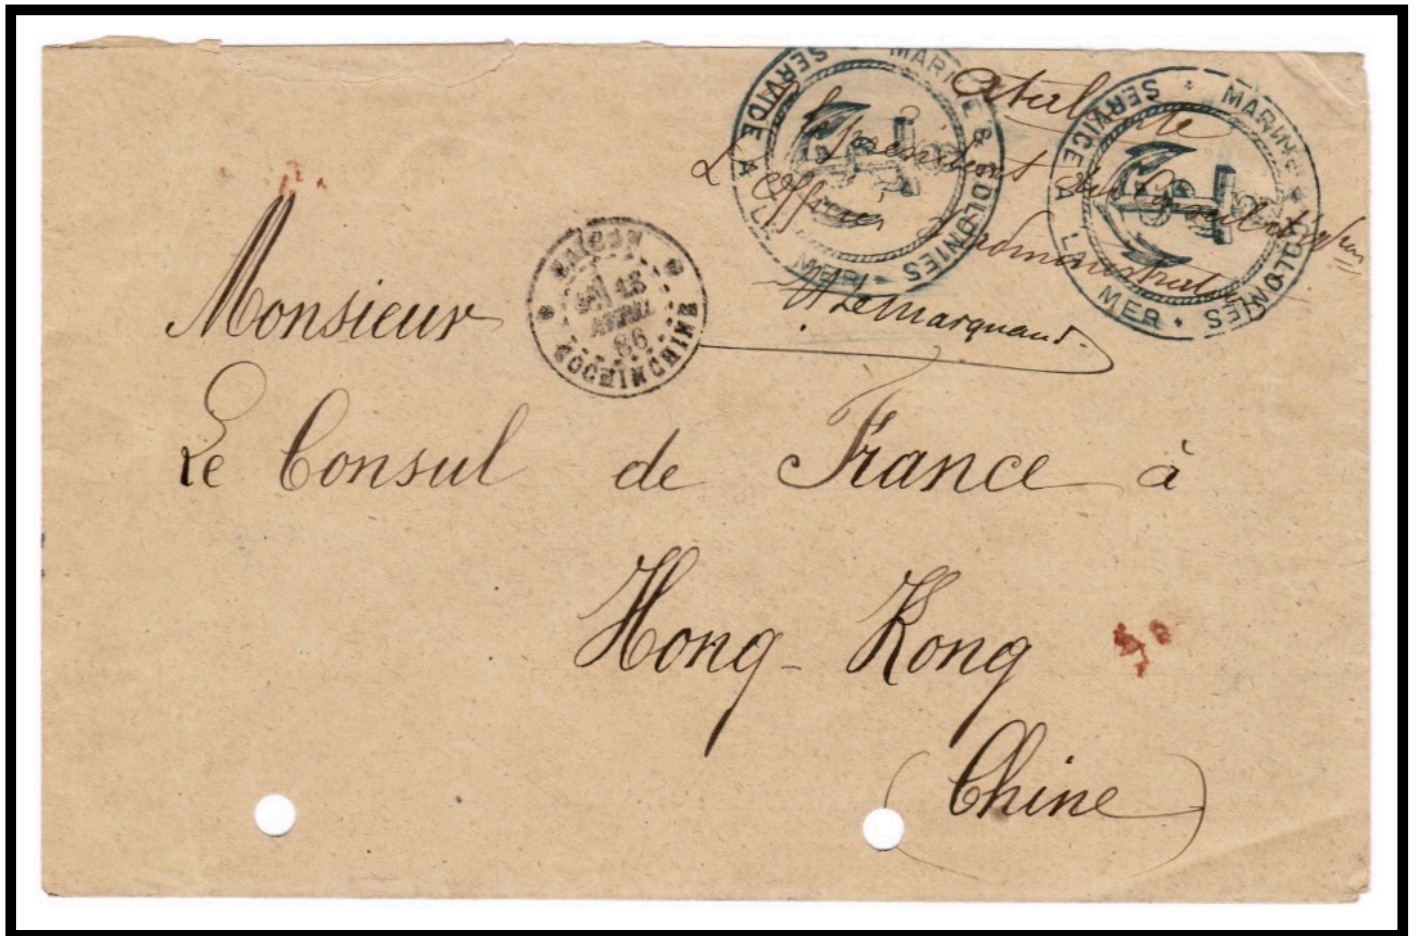 MARINE & COLONIES * SERVICE A LA MER *
MARINE & COLONIES * SERVICE A LA MER *
Atalante
Le président du Conseil d'adon
L'officier d'administration
Lemarquand
SAIGON
15
AVRIL
86
COCHINCHINE
Monsieur
Le Consul de France à
Hong-Kong
(Chine)